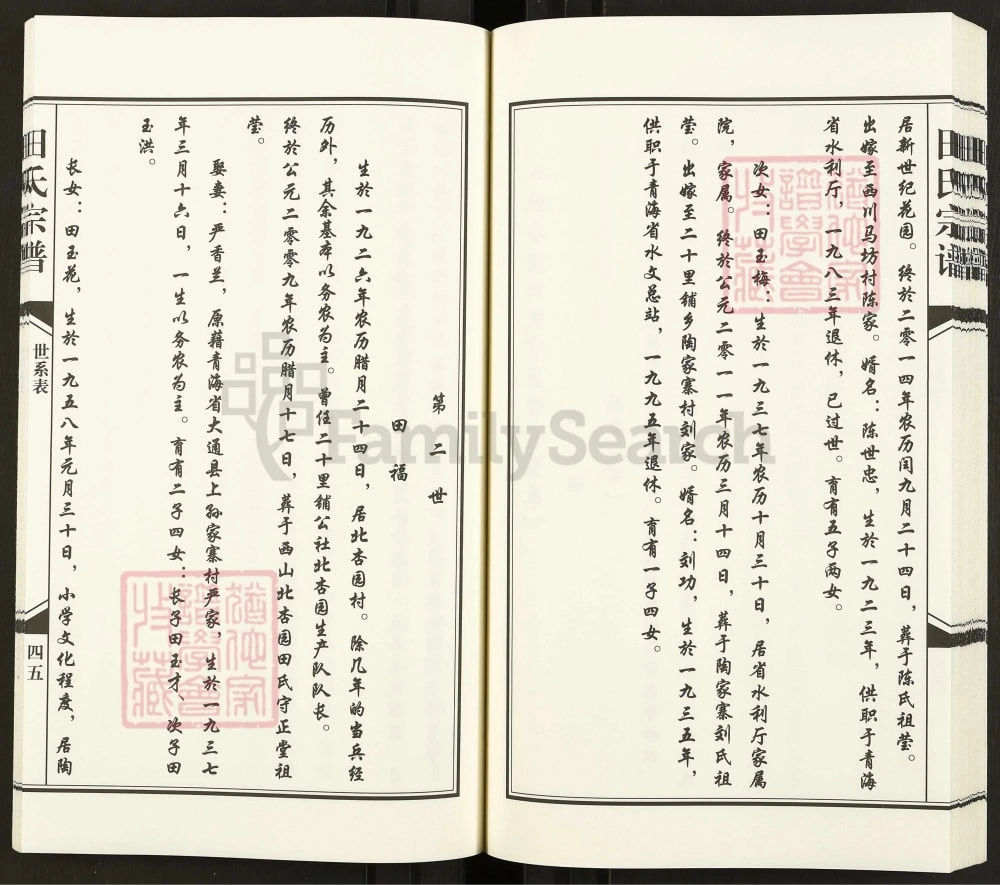 居新世纪花园。终於二零一四年农历闰九月二十四日，葬于陈氏祖莹。
出嫁至西川马坊村陈家。婿名：陈世忠，生於一九二三年，供职于青海
省水利厅，一九八三年退休，已过世。育有五子两女。
次女：田玉梅：生於一九三七年农历十月三十日，居省水利厅家属
院，家属。终於公元二零一一年农历三月十四日，葬于陶家寨刘氏祖
莹。出嫁至二十里铺乡陶家寨村刘家。婿名：刘功，生於一九三五年，
供职于青海省水文总站，一九九五年退休。育有一子四女。
田氏宗谱
第二世
田福
生於一九二六年农历腊月二十四日，居北杏园村。除几年的当兵经
历外，其余基本以务农为主。曾任二十里铺公社北杏园生产队队长。
终於公元二零零九年农历腊月十七日，葬于西山北杏园田氏守正堂祖
莹。
娶妻：严香兰，原藉青海省大通县上孙家寨村严家，生於一九三七
年三月十六日，一生以务农为主。育有二子四女：长子田玉才、次子田
玉洪。
长女：田玉花，生於一九五八年元月三十日，小学文化程度，居陶
田氏宗谱
世系表
四五
FamilySearch